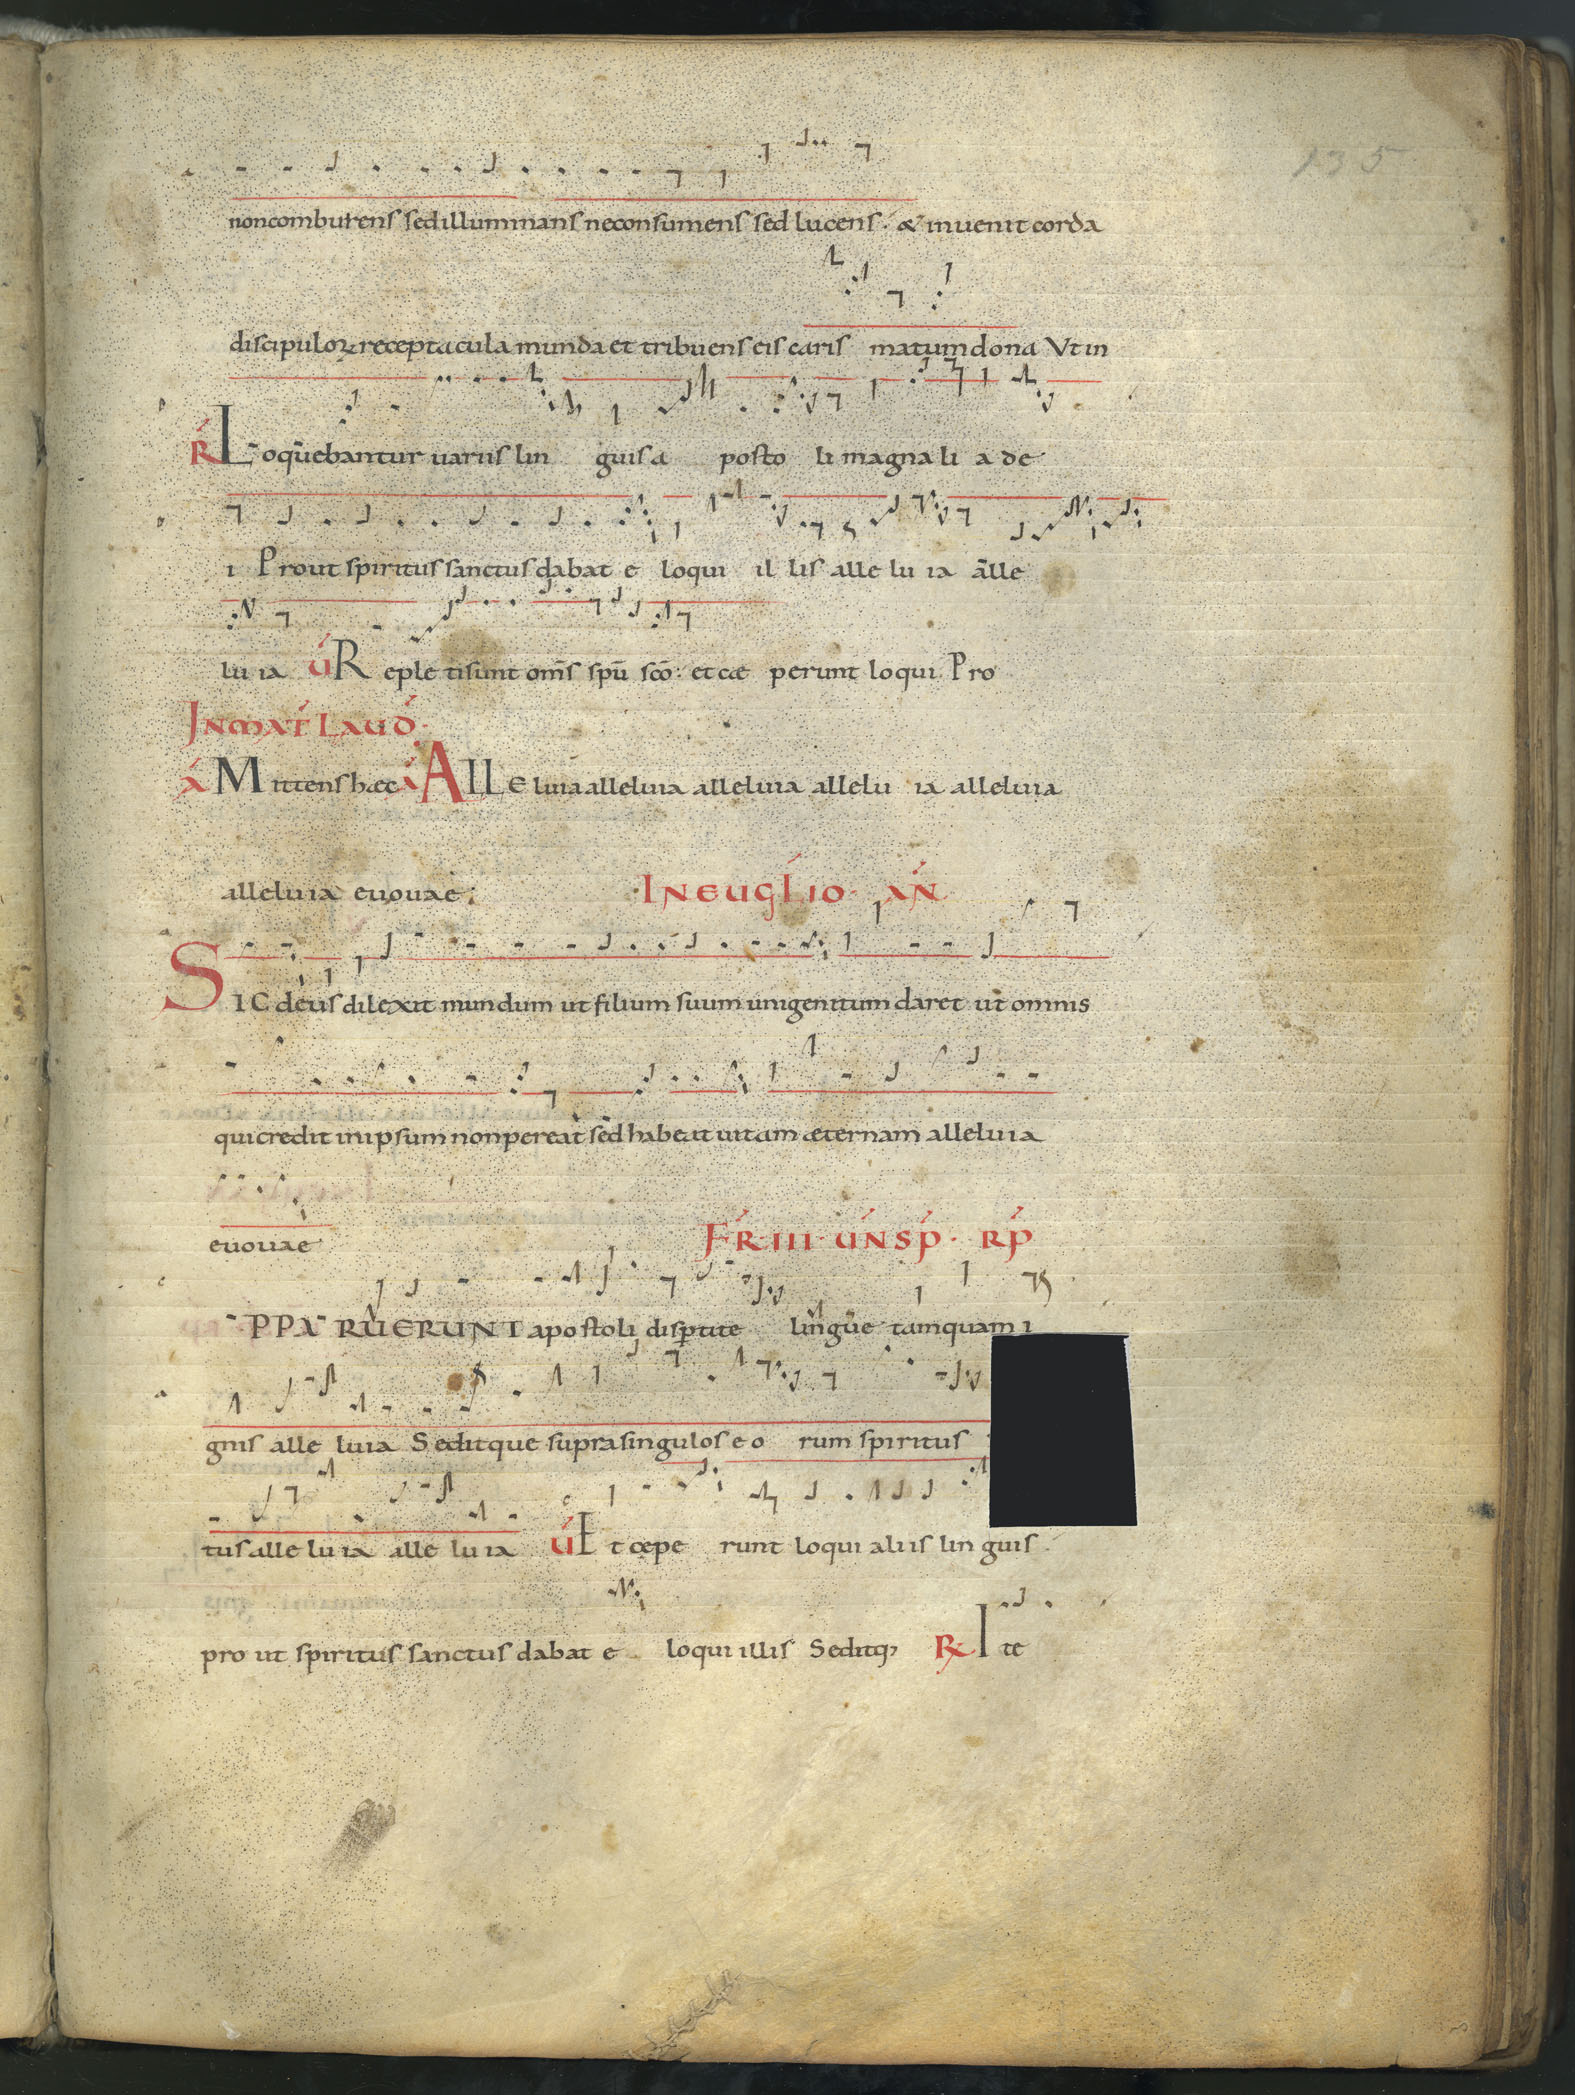 135
non comburens sed illuminans ne consumens sed lucens . & inuenit corda
discipuloꝝ receptacula munda et tribuens eis caris matum dona Vt in
R̕ Loquebantur uariis lin guis a posto li magna li a de
i Prout spiritus sanctus dabat e loqui il lis alle lu ia alle
lu ia V̕ R eple ti sunt om̄s spū sc̄o : et cæ perunt loqui Pro
IN MAT̕ LAUD̕.
A̕ M ittens hæc A̕ ALLE luia alleluia alleluia allelu ia alleluia
alleluia euouae ;
IN EUGL̕IO . AN̕
SIC deus dilexit mundum ut filium suum unigenitum daret ut omnis
qui credit in ipsum non pereat sed habeat uitam æternam alleluia
euouae
FR̕ III UN̕SP̕ . RP̕
PPARUERUNT apostoli disp̱tite lingue tamquam i
gnis alle luia Seditque supra singulos e o rum spiritus
tus alle lu ia alle lu ia V̕ E t cœpe runt loqui aliis lin guis .
pro ut spiritus sanctus dabat e loqui illis Seditq; R̕ I te